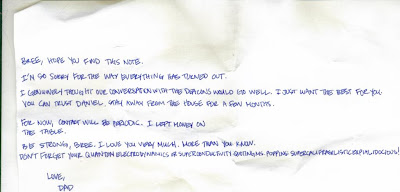 BREE, HOPE YOU FIND THIS NOTE.
I'M SO SORRY FOR THE WAY EVERYTHING HAS TURNED OUT.
I GENUINELY THOUGHT OUR CONVERSATION WITH THE DEACONS WOULD GO WELL. I JUST WANT THE BEST FOR YOU.
YOU CAN TRUST DANIEL, STAY AWAY FROM THE HOUSE FOR A FEW MONTHS.
FOR NOW, CONTACT WILL BE PERIODIC. I LEFT MONEY ON
THE TABLE.
BE STRONG, BREE. I LOVE YOU VERY MUCH. MORE THAN YOU KNOW.
DON'T FORGET YOUR QUANTUM ELECTRODYNAMICS OR SUPERCONDUCTIVITY QUOTING MS. POPPINS SUPERCALIFRAGILISTICEXPIALIDOCIOUS!
LOVE,
DAD